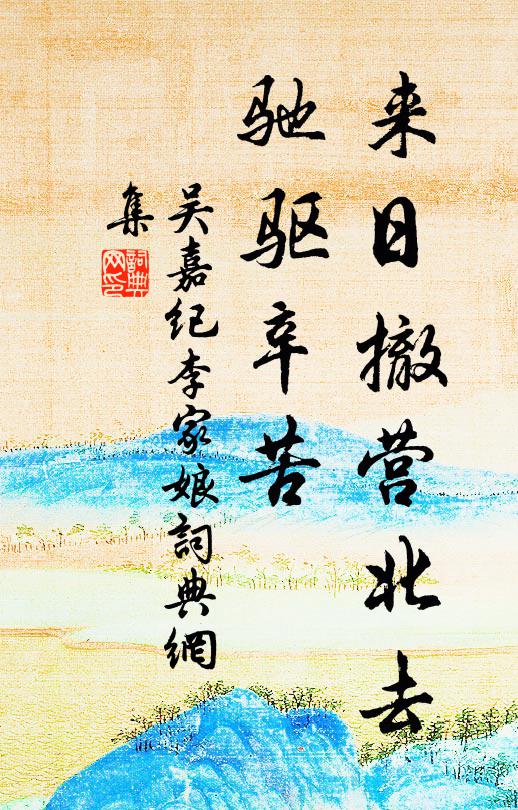 来日撤营北去
驰驱辛苦
吴嘉纪李家娘詞典網
集
詞典
网印